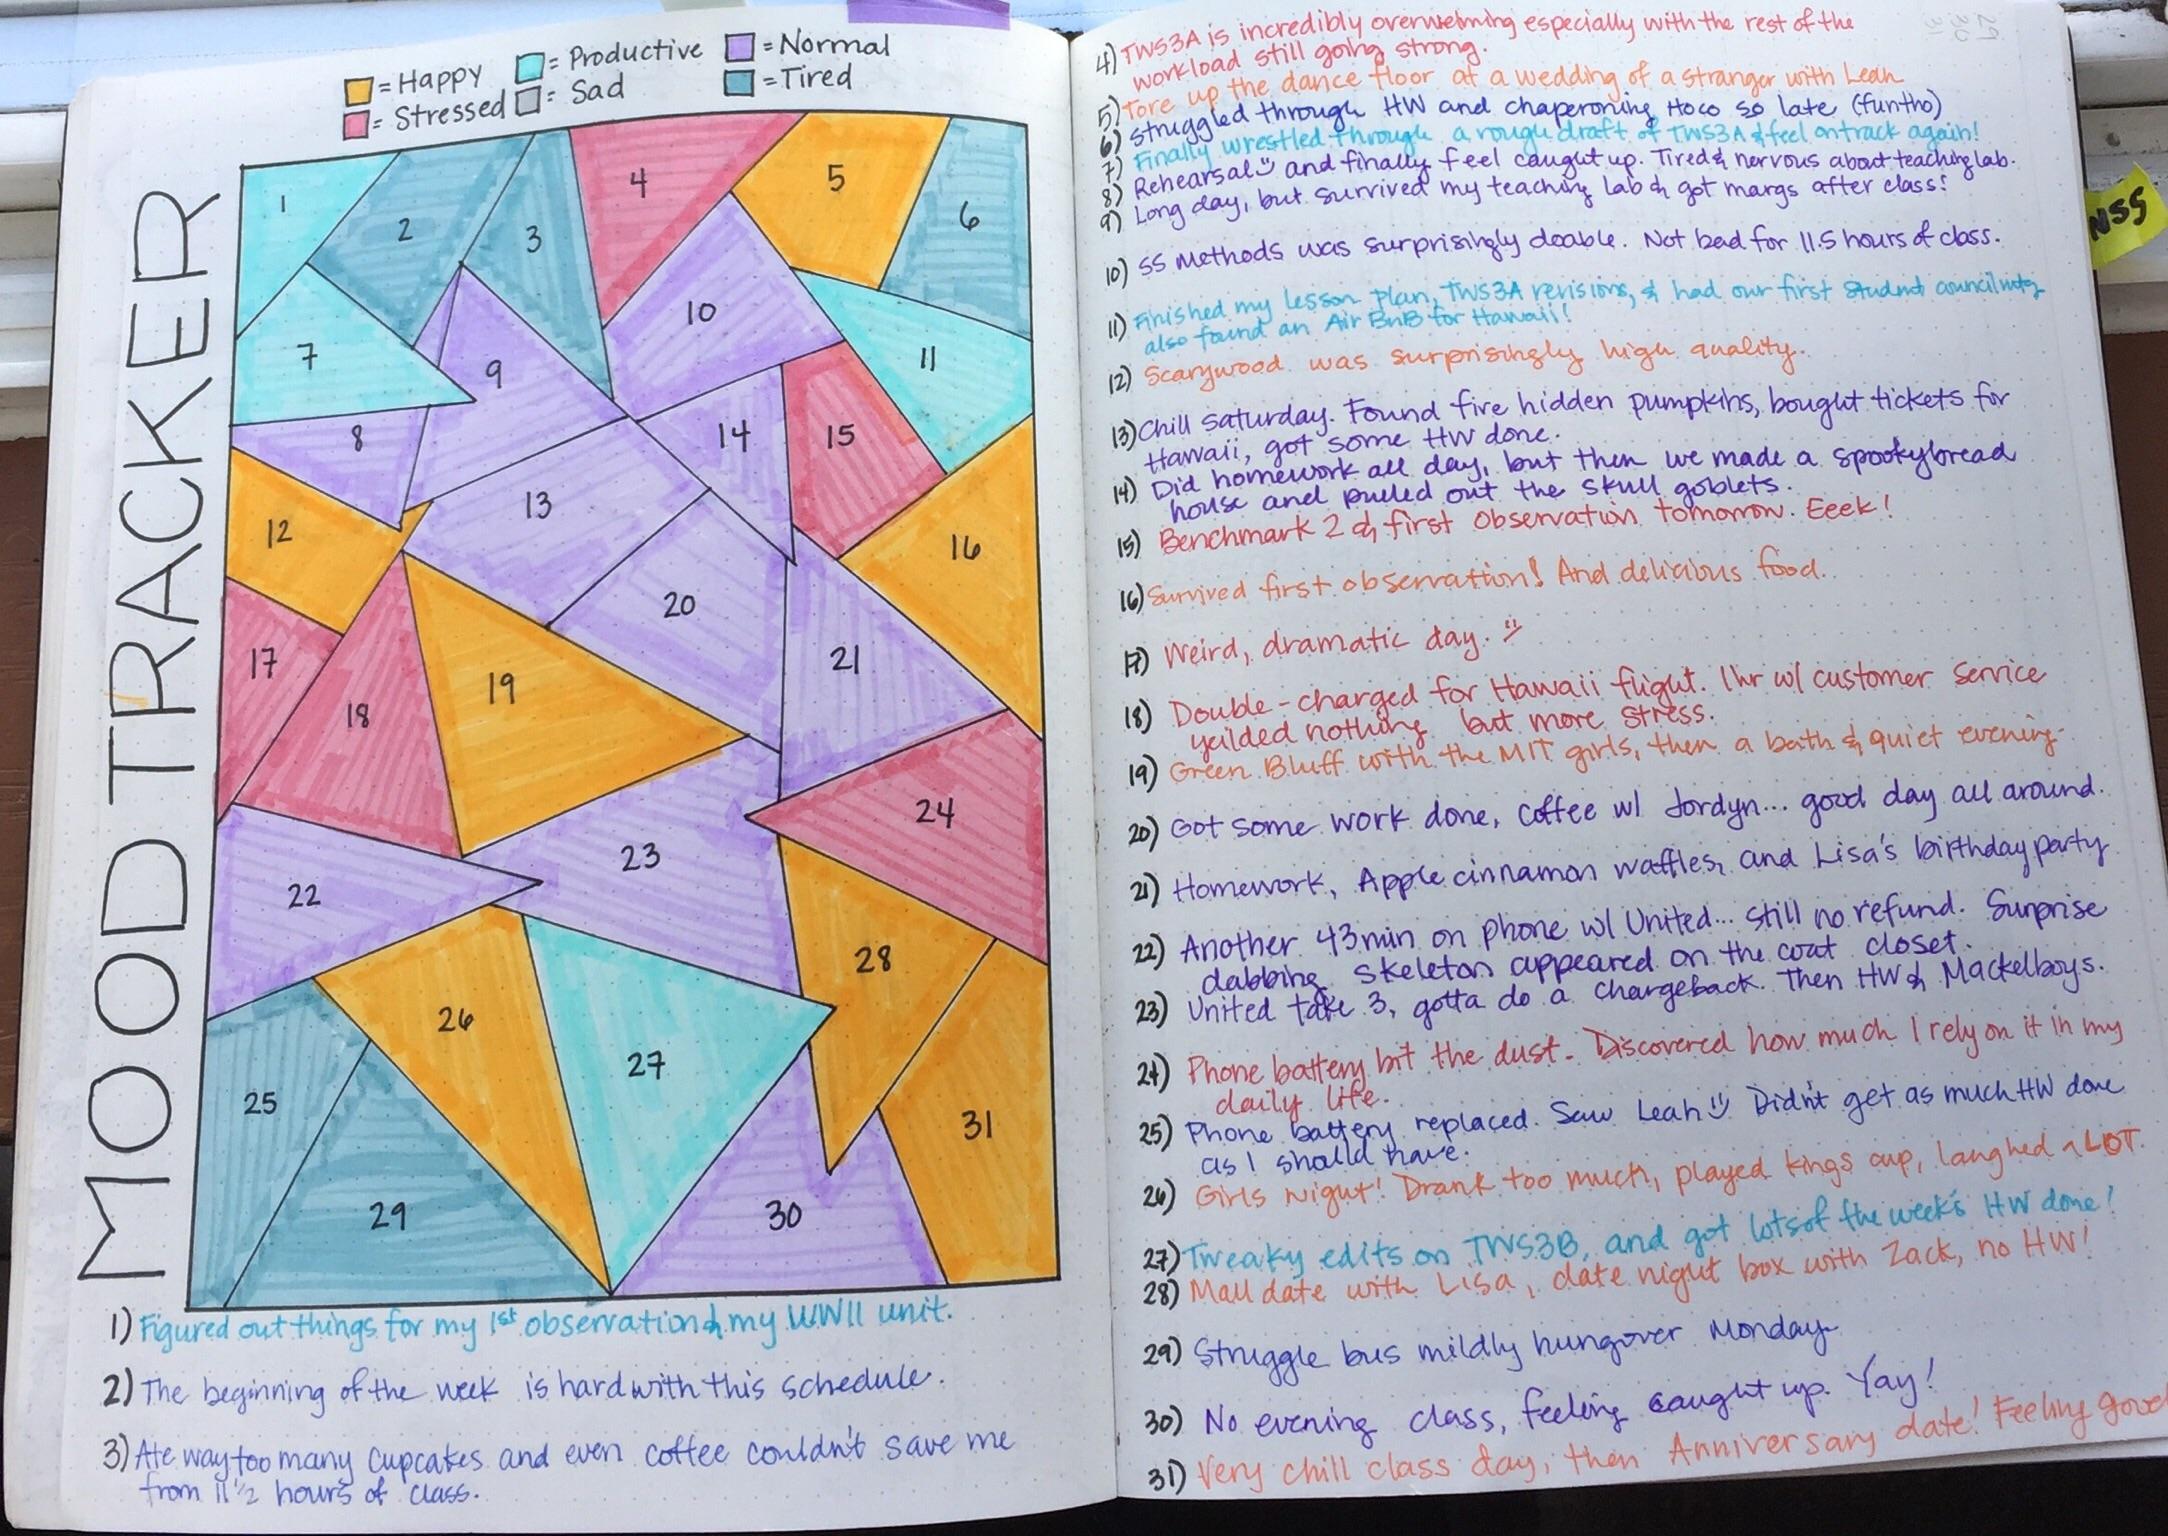 = Happy
= Productive
= Normal
= Stressed
= Sad
= Tired
MOOD TRACKER
1
2
3
4
5
6
7
8
9
10
11
12
13
14
15
16
17
18
19
20
21
22
23
24
25
26
27
28
29
30
31
1) Figured out things for my 1st observation & my WWII unit.
2) The beginning of the week is hard with this schedule.
3) Ate way too many cupcakes and even coffee couldn't save me
from 11 1/2 hours of class.
4) TWS3A is incredibly overwelming especially with the rest of the
workload still going strong.
5) Tore up the dance floor at a wedding of a stranger with Leah
6) Struggled through HW and chaperoning Hoco so late (fun tho)
7) Finally wrestled through a rough draft of TWS3A & feel on track again!
8) Rehearsal and finally feel caught up. Tired & nervous about teaching lab.
9) Long day, but survived my teaching lab & got margs after class!
10) SS Methods was surprisingly doable. Not bad for 11.5 hours of class.
11) Finished my lesson plan, TWS3A revisions, & had our first student council mtg
also found an Air BnB for Hawaii!
12) Scarywood was surprisingly high quality.
13) Chill Saturday. Found five hidden pumpkins, bought tickets for
Hawaii, got some HW done.
14) Did homework all day, but then we made a spookybread
house and pulled out the skull goblets.
15) Benchmark 2 & first observation tomorrow. Eeek!
16) Survived first observation! And delicious food.
17) Weird, dramatic day.
18) Double-charged for Hawaii flight. 1hr w/ customer service
yeilded nothing but more stress.
19) Green Bluff with the MIT girls, then a bath & quiet evening.
20) Got some work done, coffee w/ Jordyn... good day all around.
21) Homework, Apple cinnamon waffles, and Lisa's birthday party
22) Another 43min on phone w/ United... still no refund. Surprise
dabbing skeleton appeared on the coat closet.
23) United take 3, gotta do a chargeback. Then HW & Mackelboys.
24) Phone battery bit the dust. Discovered how much I rely on it in my
daily life.
25) Phone battery replaced. Saw Leah Didn't get as much HW done
as I should have.
26) Girls Night! Drank too much, played kings cup, laughed a LOT.
27) Tweaky edits on TWS3B, and got lots of the week's HW done!
28) Mall date with Lisa, date night box with Zack, no HW!
29) Struggle bus mildly hungover Monday
30) No evening class, feeling caught up. Yay!
31) Very chill class day, then Anniversary date! Feeling good
NSS